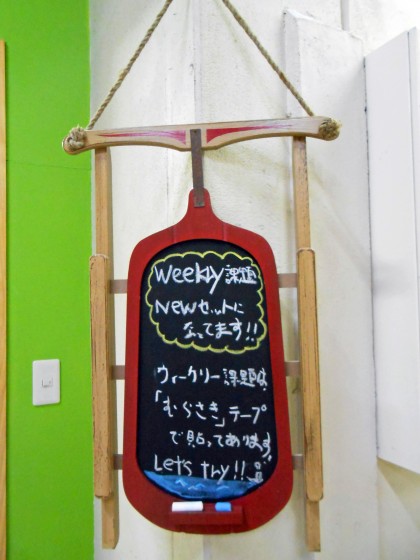 Weekly 課題
Newセットに
なってます!!
ウィークリー課題は
「むらさき」テープ
で貼ってあります。
Let's try!!